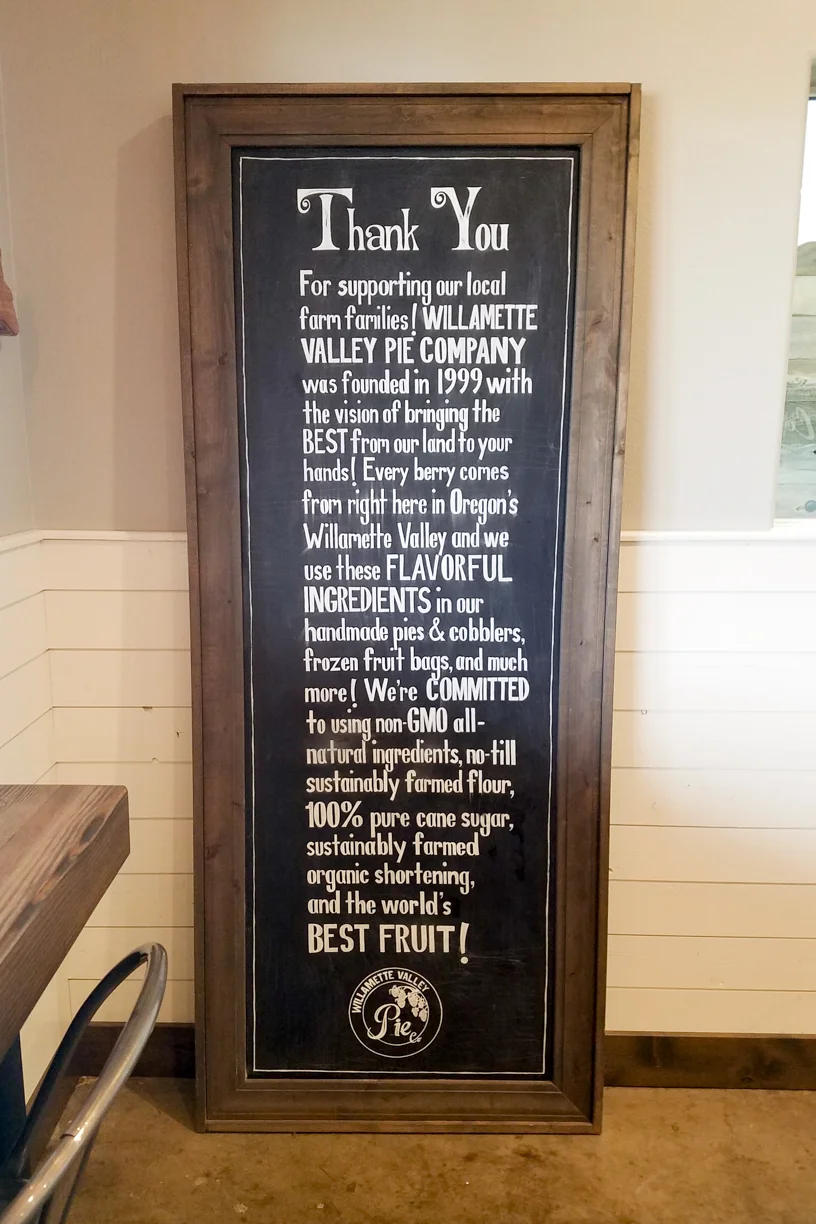 Thank You
For supporting our local
farm families! WILLAMETTE
VALLEY PIE COMPANY
was founded in 1999 with
the vision of bringing the
BEST from our land to your
hands! Every berry comes
from right here in Oregon's
Willamette Valley and we
use these FLAVORFUL
INGREDIENTS in our
handmade pies & cobblers,
frozen fruit bags, and much
more! We're COMMITTED
to using non-GMO all-
natural ingredients, no-till
sustainably farmed flour,
100% pure cane sugar,
sustainably farmed
organic shortening,
and the world's
BEST FRUIT!
WILLAMETTE VALLEY
Pie Co